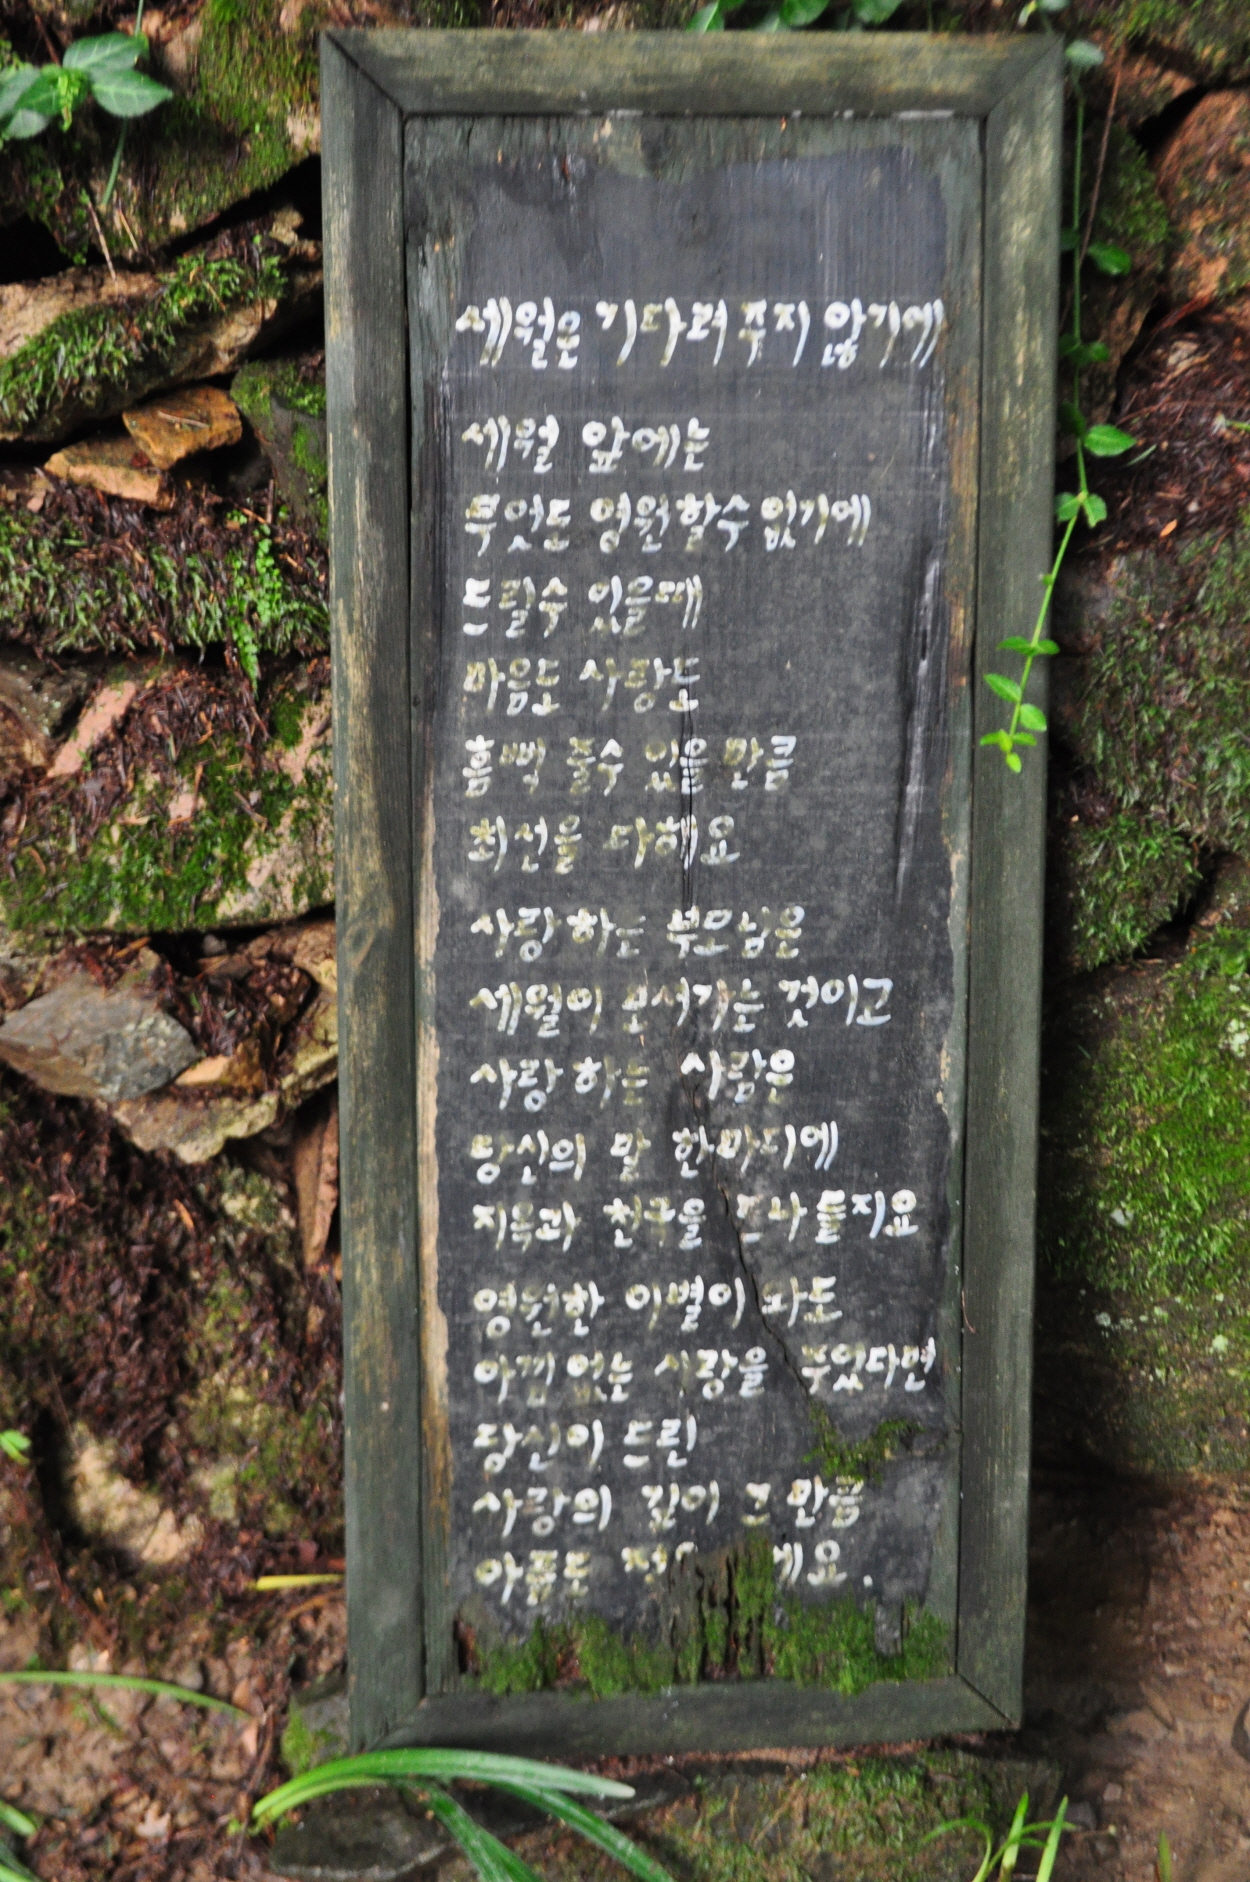 세월은 기다려 주지 않기에
세월 앞에는
무엇도 영원 할수 없기에
드릴수 있을때
마음도 사랑도
흠뻑 줄수 있을 만큼
최선을 다해요
사랑 하는 부모님은
세월이 모셔가는 것이고
사랑 하는 사람은
당신의 말 한마디에
지옥과 천국을 드나 들지요
영원한 이별이 와도
아낌 없는 사랑을 주었다면
당신이 드린
사랑의 깊이 그 만큼
아픔도